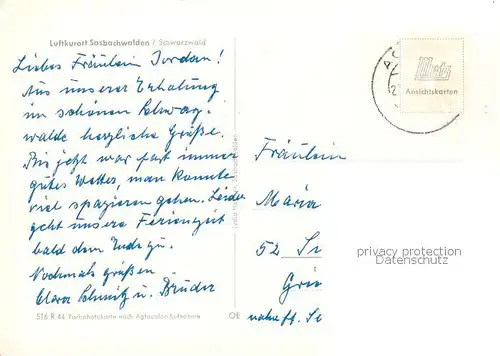 Luftkurort Sasbachwalden / Schwarzwald
Liebes Fräulein Jordan!
Aus unserer Erholung
im schönen Schwarz-
walde herzliche Grüße.
Bis jetzt war fast immer
gutes Wetter, man konnte
viel spazieren gehen. Leider
geht unsere Ferienzeit
bald dem Ende zu.
Nochmals grüßen
Clara Schmitz u. Brüder
516 R 44 Farbphotokarte nach Agfacolor-Aufnahme
OE
Metz
Ansichtskarten
Fräulein
Maria
52
privacy protection
Datenschutz